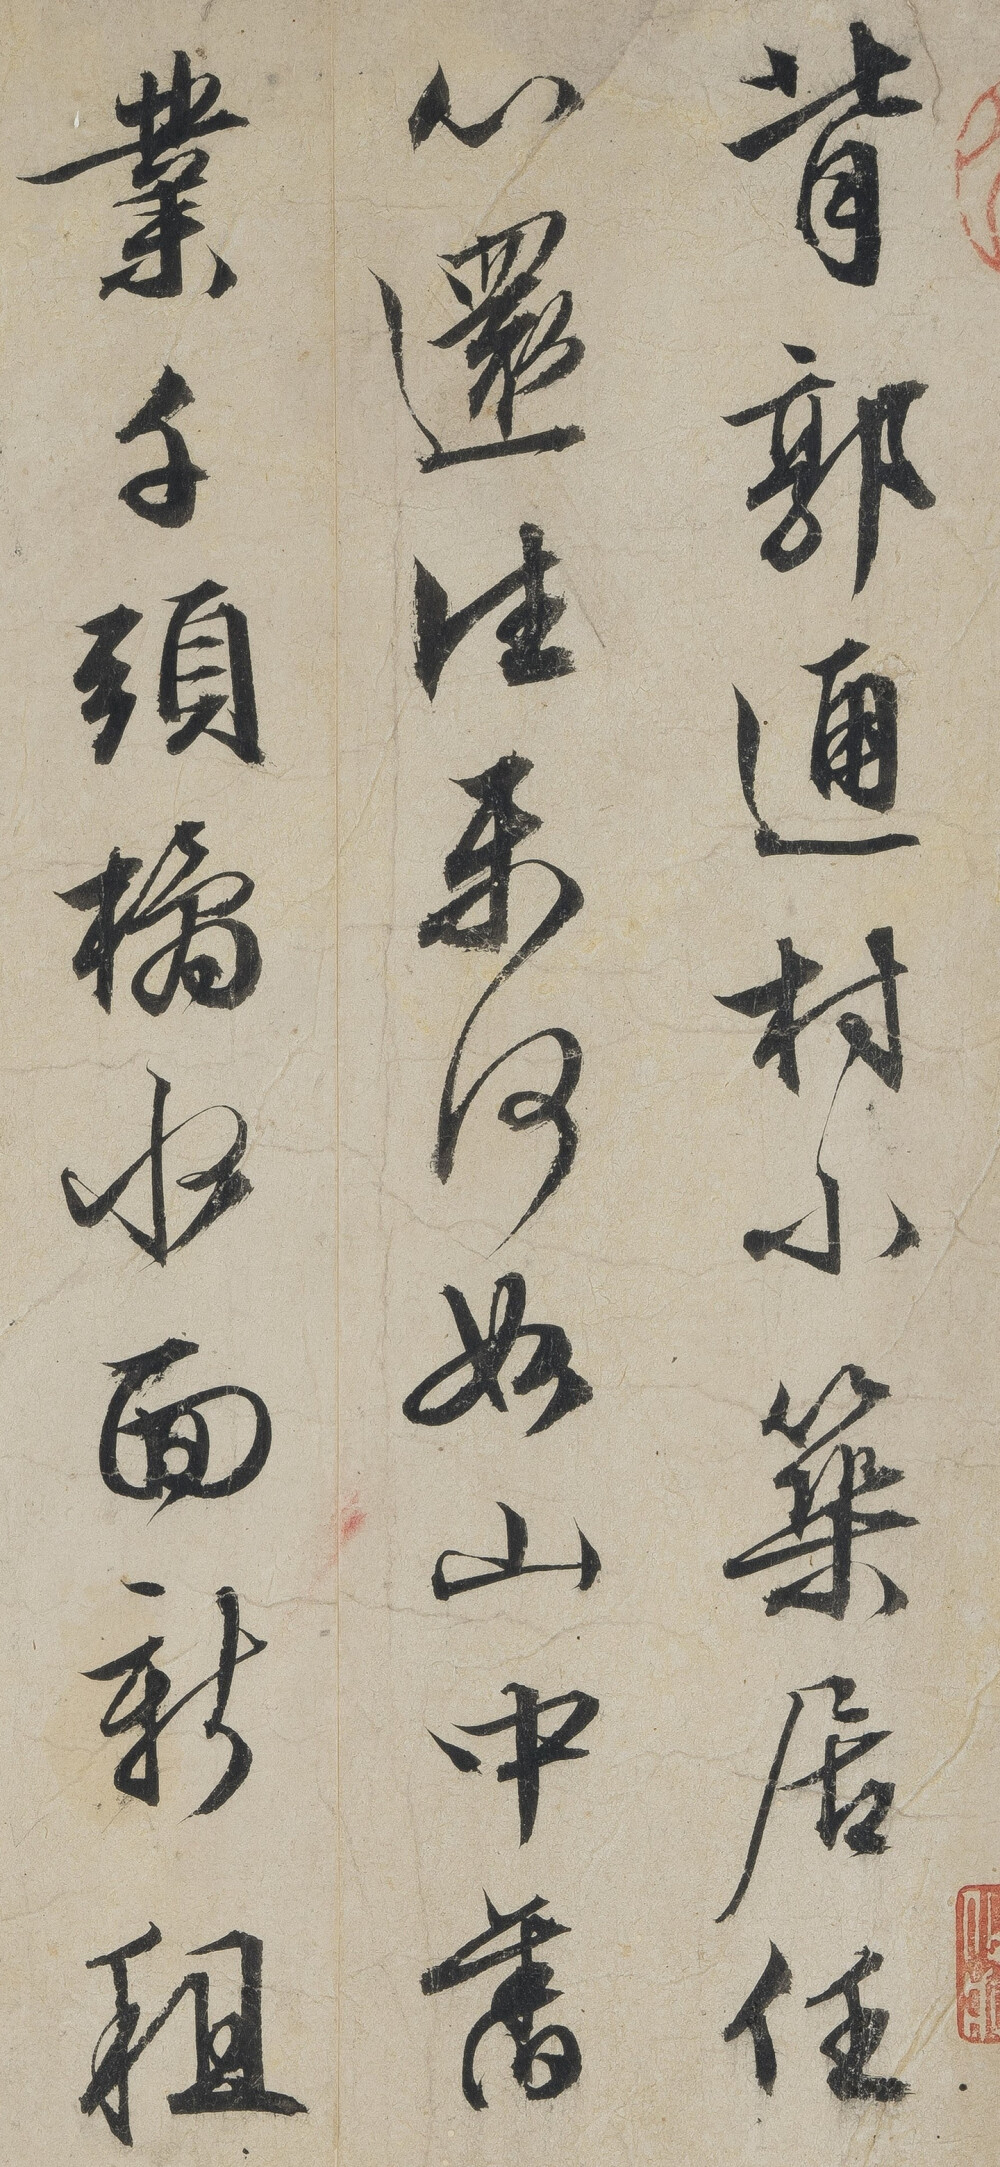 背郭通村小築居任
心還往樂何如山中舊
業千頭橘水面新租